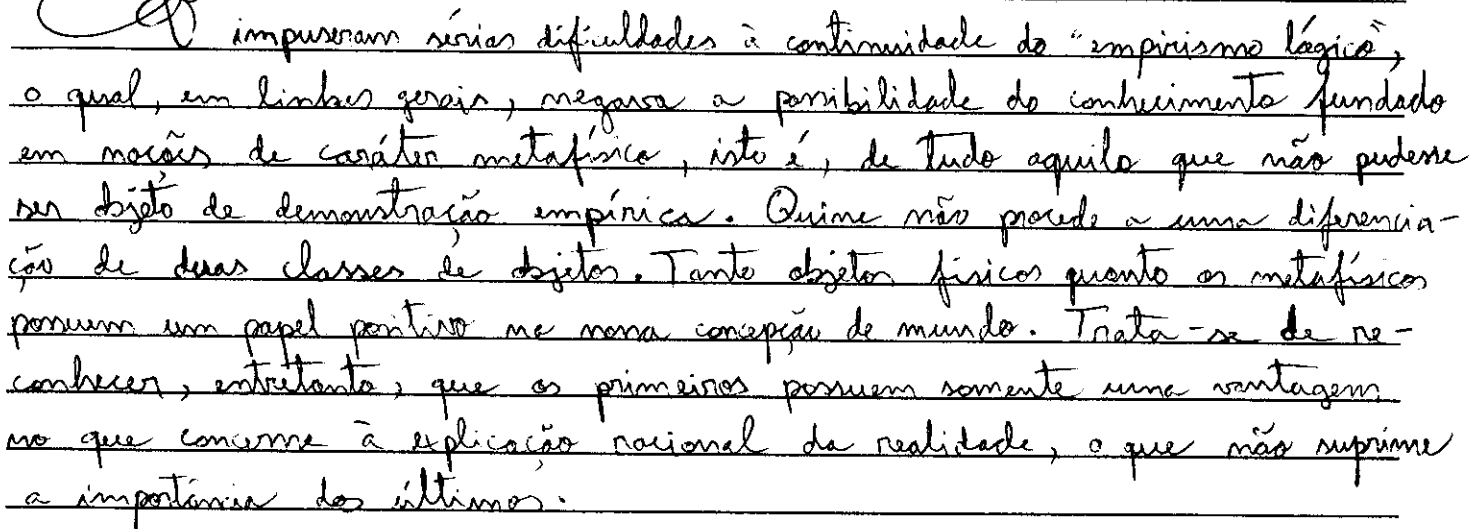 impuseram sérias dificuldades à continuidade do "empirismo lógico",
o qual, em linhas gerais, negava a possibilidade do conhecimento fundado
em noções de caráter metafísico, isto é, de tudo aquilo que não pudesse
ser objeto de demonstração empírica. Quine não procede a uma diferencia-
ção de duas classes de objetos. Tanto objetos físicos quanto os metafísicos
possuem um papel positivo na nossa concepção de mundo. Trata-se de re-
conhecer, entretanto, que os primeiros possuem somente uma vantagem
no que concerne à explicação racional da realidade, o que não suprime
a importância dos últimos.